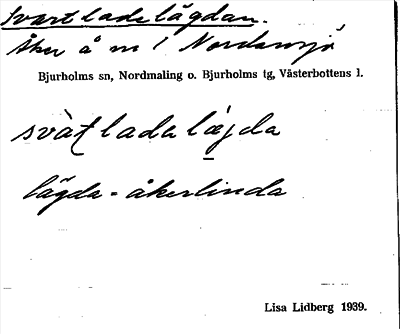 Svartladelägdan.
Åker å nr 1 Nordansjö
Bjurholms sn, Nordmaling o. Bjurholms tg, Västerbottens l.
svàt lada læjda
lägda = åkerlinda
Lisa Lidberg 1939.